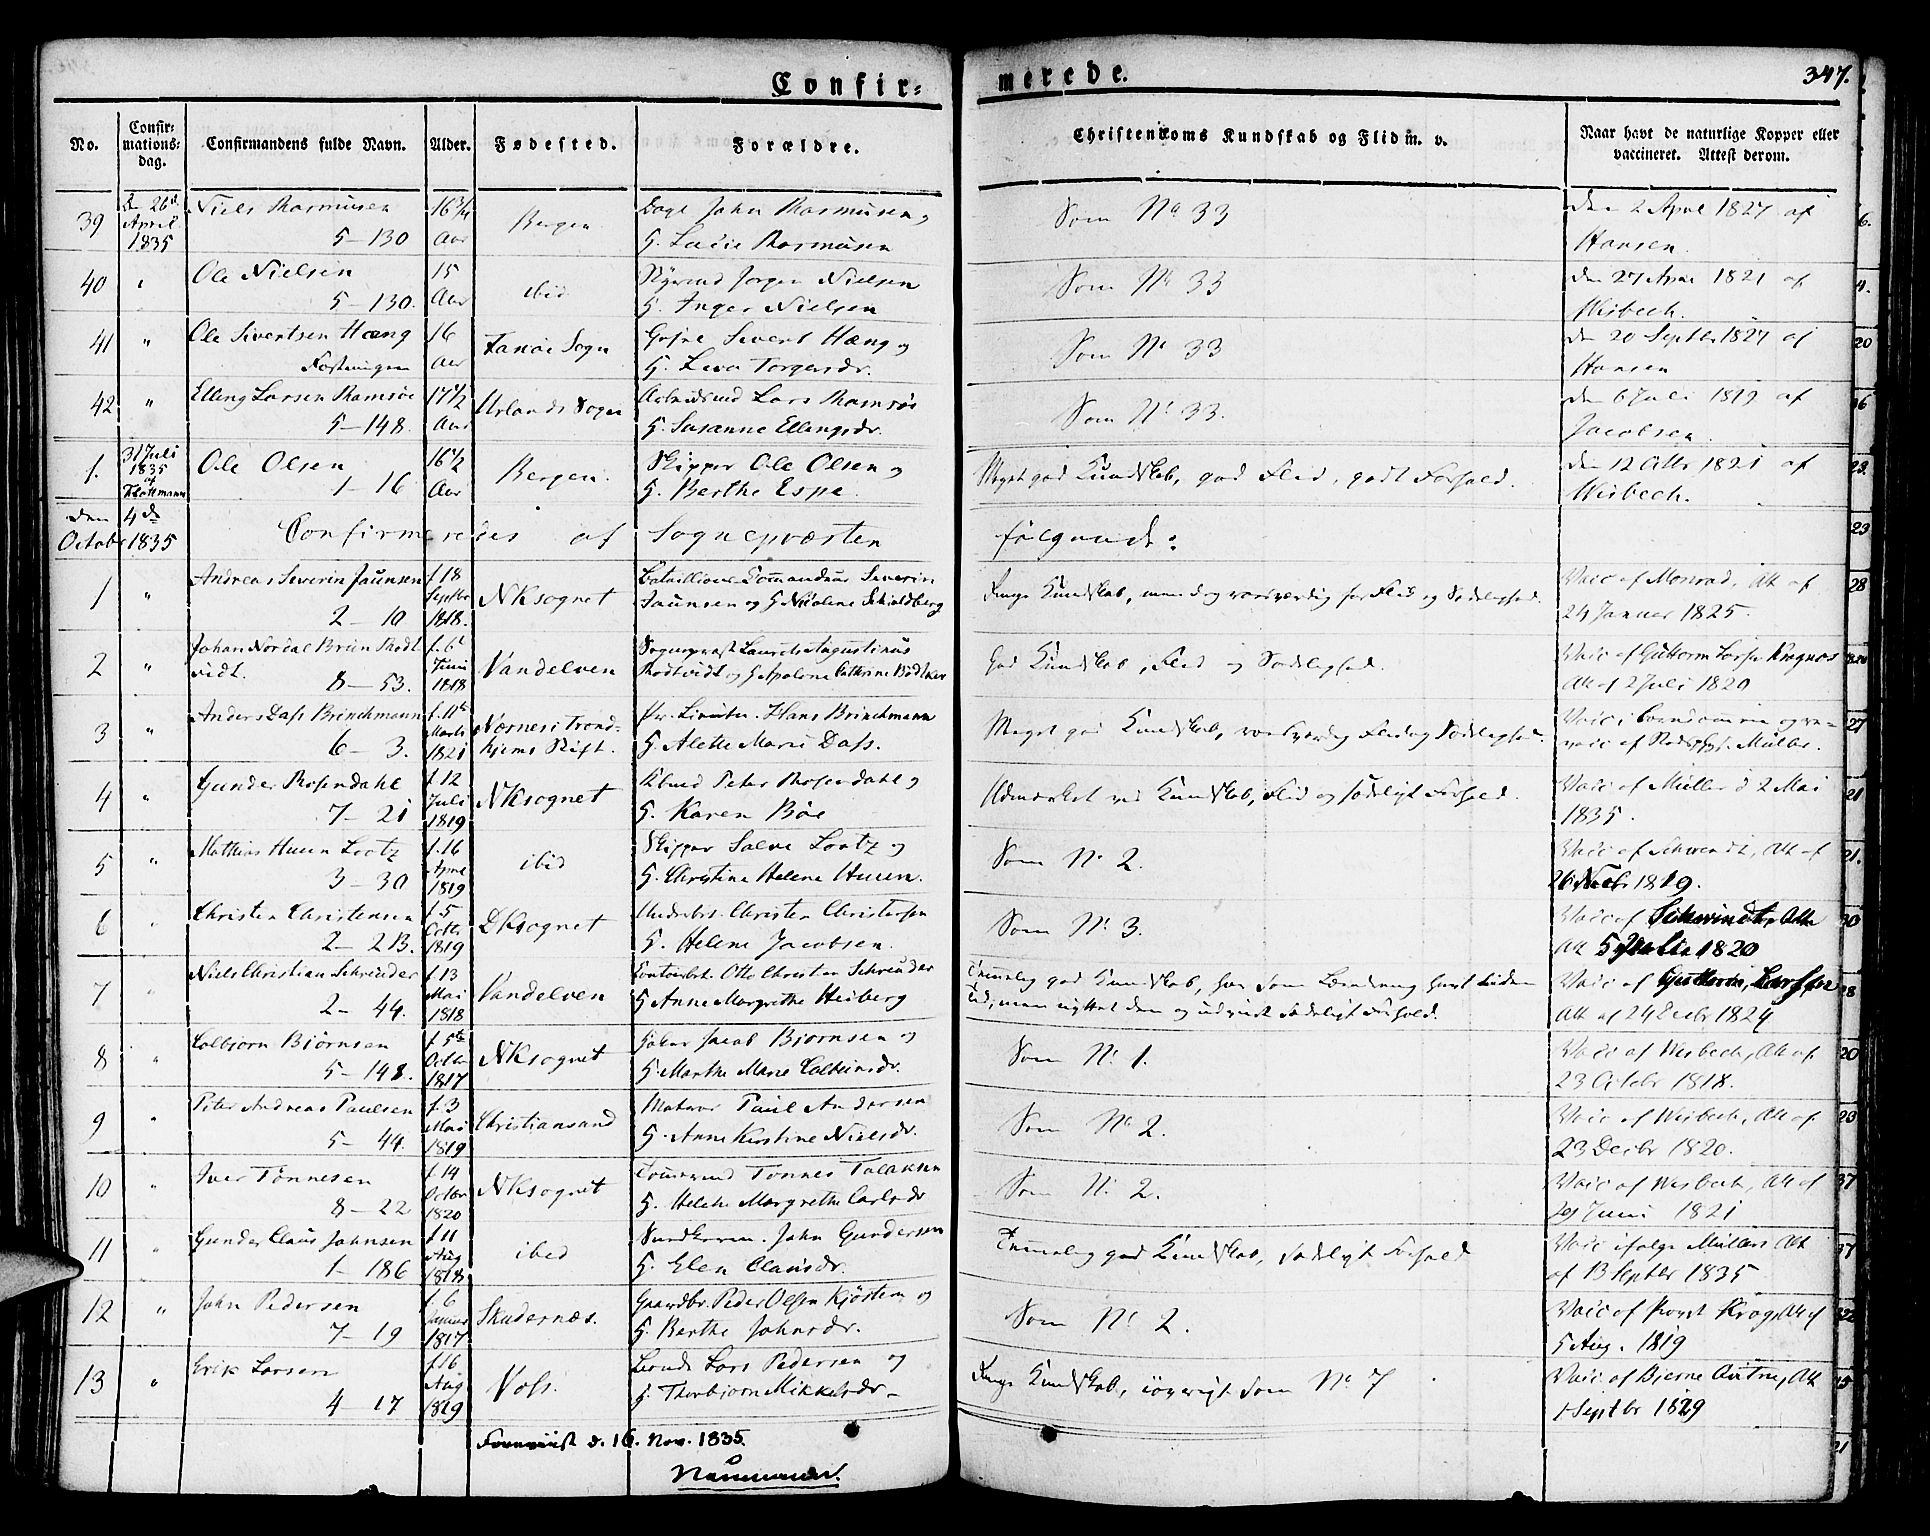 Confir=merede. 347.
No. Confir=mations=dag. Confirmandens fulde Navn. Alder. Fødested. Forældre. Christendoms Kundskab og Flid m. v. Naar havt de naturlige Kopper eller vaccineret. Attest derom.
39 D. 26d April 1835 Niels Rasmusen 5–130 Aar Bergen Dagl John Rasmusen og H. Lucie Rasmusen Som No 33 den 2 April 1827 af Hansen.
40 Ole Nielsen 5–130. 15 Aar ibid Jørgen Nielsen H. Inger Nielsen Som No 33 den 27 April 1821 af Wisbech.
41 " Ole Sivertsen Hæng Fæstningen 16 Aar Fanøe Sogn Sivert Hæng og H. Torgersdr. Som No 33 den 20 Septbr 1827 af Hansen
42 " Elling Larsen Ramsøe 5–148. 17 1/2 Aar Urlands Sogn Arbeidsmd Lars Ramsøe H. Susanne Ellingsdr. Som No 33. den 6 Juli 1819 af Jacobsen.
1. 31 Juli 1835 af Ole Olsen 1–16 16 1/2 Aar Bergen. Skipper Ole Olsen og H. Berthe Espe Meget god Kundskab, god Flid, godt Forhold. den 12 Octbr 1821 af Wisbech.
den 4de Octobr 1835 Confirmeredes af Sognepræsten følgende:
1 " Andreas Severin Jaunsen 2–10 f. 18 Septbr 1818. NKsognet Batallions Commandeur Severin Jaunsen og H Nicoline Schioldberg Kundskab, Flid og Sædelighed. Vacc af Monrad, Att af 24 Januar 1825.
2 " Johan Nordal Brun Rodtvidt. 8–53. f. 6t Juni 1818 Vandelven Sognepræst Laurentius Augustinus Rodtvidt og H Apolone Cathrine Bødtker God Kundskab, Flid og Sædelighed. Vacc af Guttorm Larsen Att af 2 Juli 1820
3 " Anders Dass Brinchmann 6–3. f. 11te Marts 1821 Nærnes i Trondhjems Stift. Pr. Lieuten. Hans Brinchmann H. Alette Marie Dass. Meget god Kundskab, Flid og Sædelighed. Vacc i Müller.
4 " Gunder Rosendahl 7–21 f. 12 Juli 1819 NKsognet Peter Rosendahl og H. Karen Bøe Udmærket god Kundskab, Flid og sædeligt Forhold. Vacc af Müller d 2 Mai 1835.
5 " Mathias Huun Lootz 3–30 f. 16 April 1819 ibid Skipper Salve Lootz og H. Christine Helene Huun. Som No 2. Vacc af Schwindt, Att af 26 Novbr 1819.
6 Christen Christensen 2–2B. f. 5 Octbr 1819 DKsognet Christen Christensen H. Helene Jacobsen. Som No 3. Vacc af Schwindt, Att 5 Julie 1820
7 Niels Christian Schreuder 2–44. f. 13 Mai 1818 Vandelven Otto Christian Schreuder H Anne Margrethe Heiberg Temmelig god Kundskab, har som Læredreng havt liden Tid, men nyttet den og udviist sædeligt Forhold. Vacc af Guttorm Larssen Att af 24 Decbr 1824
8 Colbjørn Biørnsen 5–148. f. 5te Octbr 1817 NKsognet Jacob Biørnsen og H. Marthe Marie Som No 1. Vacc af Wesbech, Att af 23 Octobr 1818.
9 " Peter Andreas Paulsen 5–44. f. 3 Mai 1819 Christiansand Matros Paul Andersen H. Anne Kirstine Nielsdr. Som No 2. Vacc af Wesbech, Att af 23 Decbr 1820.
10 " Iver Tønnesen 8–22 f. 14 Octbr 1820 NKsognet Tønnes Talaksen H. Helche Margrethe Carlsdr Som No 2. Vacc af Wesbech, Att af 29 Juni 1821
11 " Gunder Claus Johnsen 1–186 f. 11 Aug 1818 ibid John Gundersen H. Elen Clausdr. Temmelig god Kundskab, sædeligt Forhold Vacc ifølge Müllers Att af 13 Septbr 1835
12 " John Pedersen 7–19 f. 6 Januar 1817 Skudernæs. Gaardbr. Peder Olsen Kjøsten og H. Berthe Johnsdr. Som No 2. Vacc af Provst Krog, Att af 5 Aug. 1819
13 " Erik Larsen 4–17 f. 16 Aug 1819 Vols. Bonde Lars Pedersen og H. Thorbjørn Mikkelsdr. Kundskab, iøvrigt som No 7 Vacc af Bjerne Att 1 Septbr 1829
Foreviist d. 16. Nov. 1835.
Neumann.